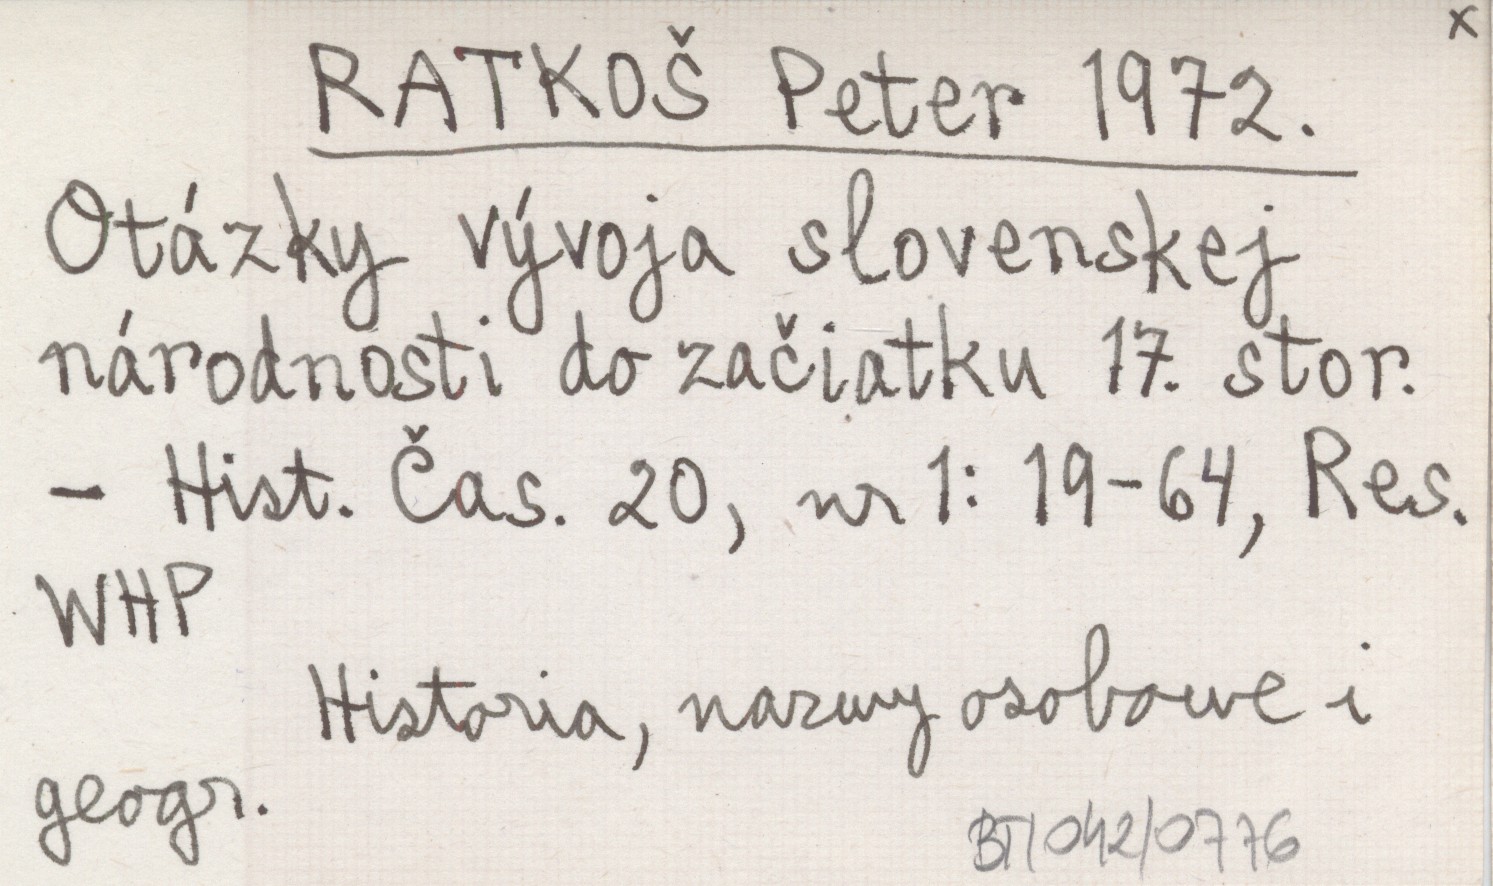 x
RATKOŠ Peter 1972.
Otázky vývoja slovenskej
národnosti do začiatku 17. stor.
- Hist. Čas. 20, nr 1: 19-64, Res.
WHP
Historia, nazwy osobowe i
geogr.
BT/042/0776